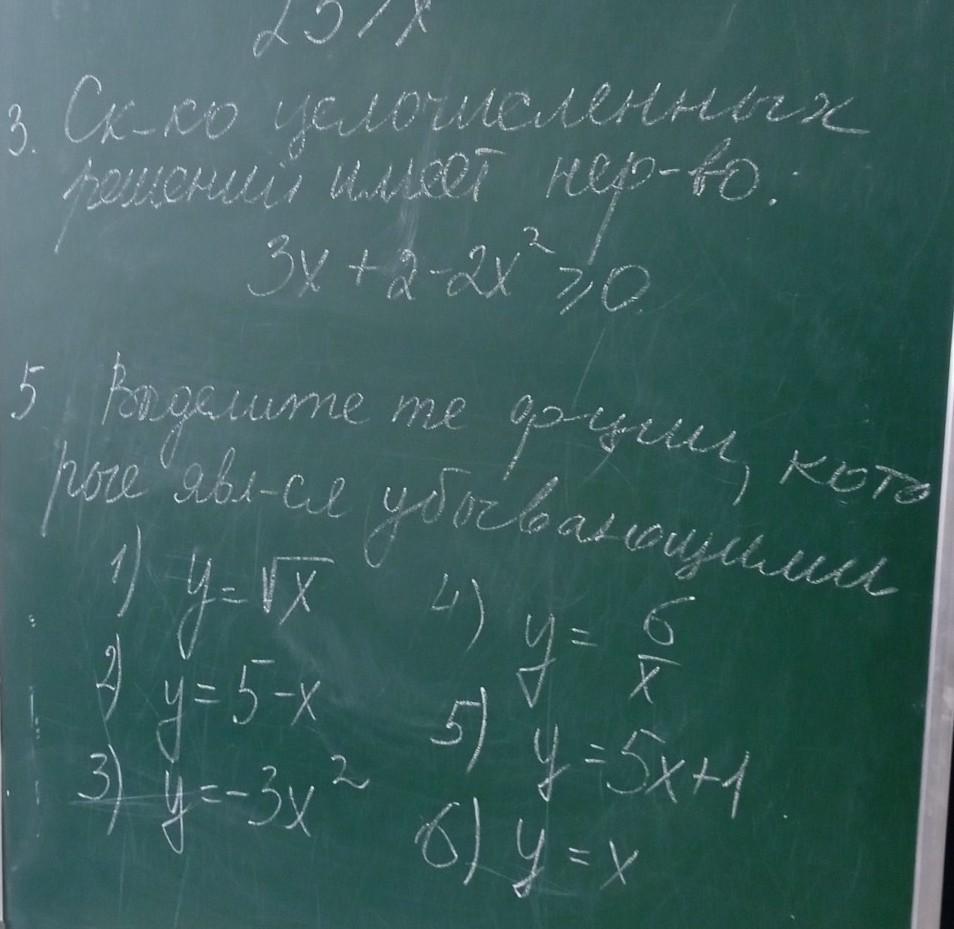 3. Ск-ко целочисленных
решений имеет нер-во:
3x + 2 - 2x² ⩾ 0
5 Выделите те ф-ции, кото
рые явл-ся убывающими
1) y = √x
2) y = 5 - x
3) y = -3x²
4) y = 6/x
5) y = 5x + 1
6) y = x